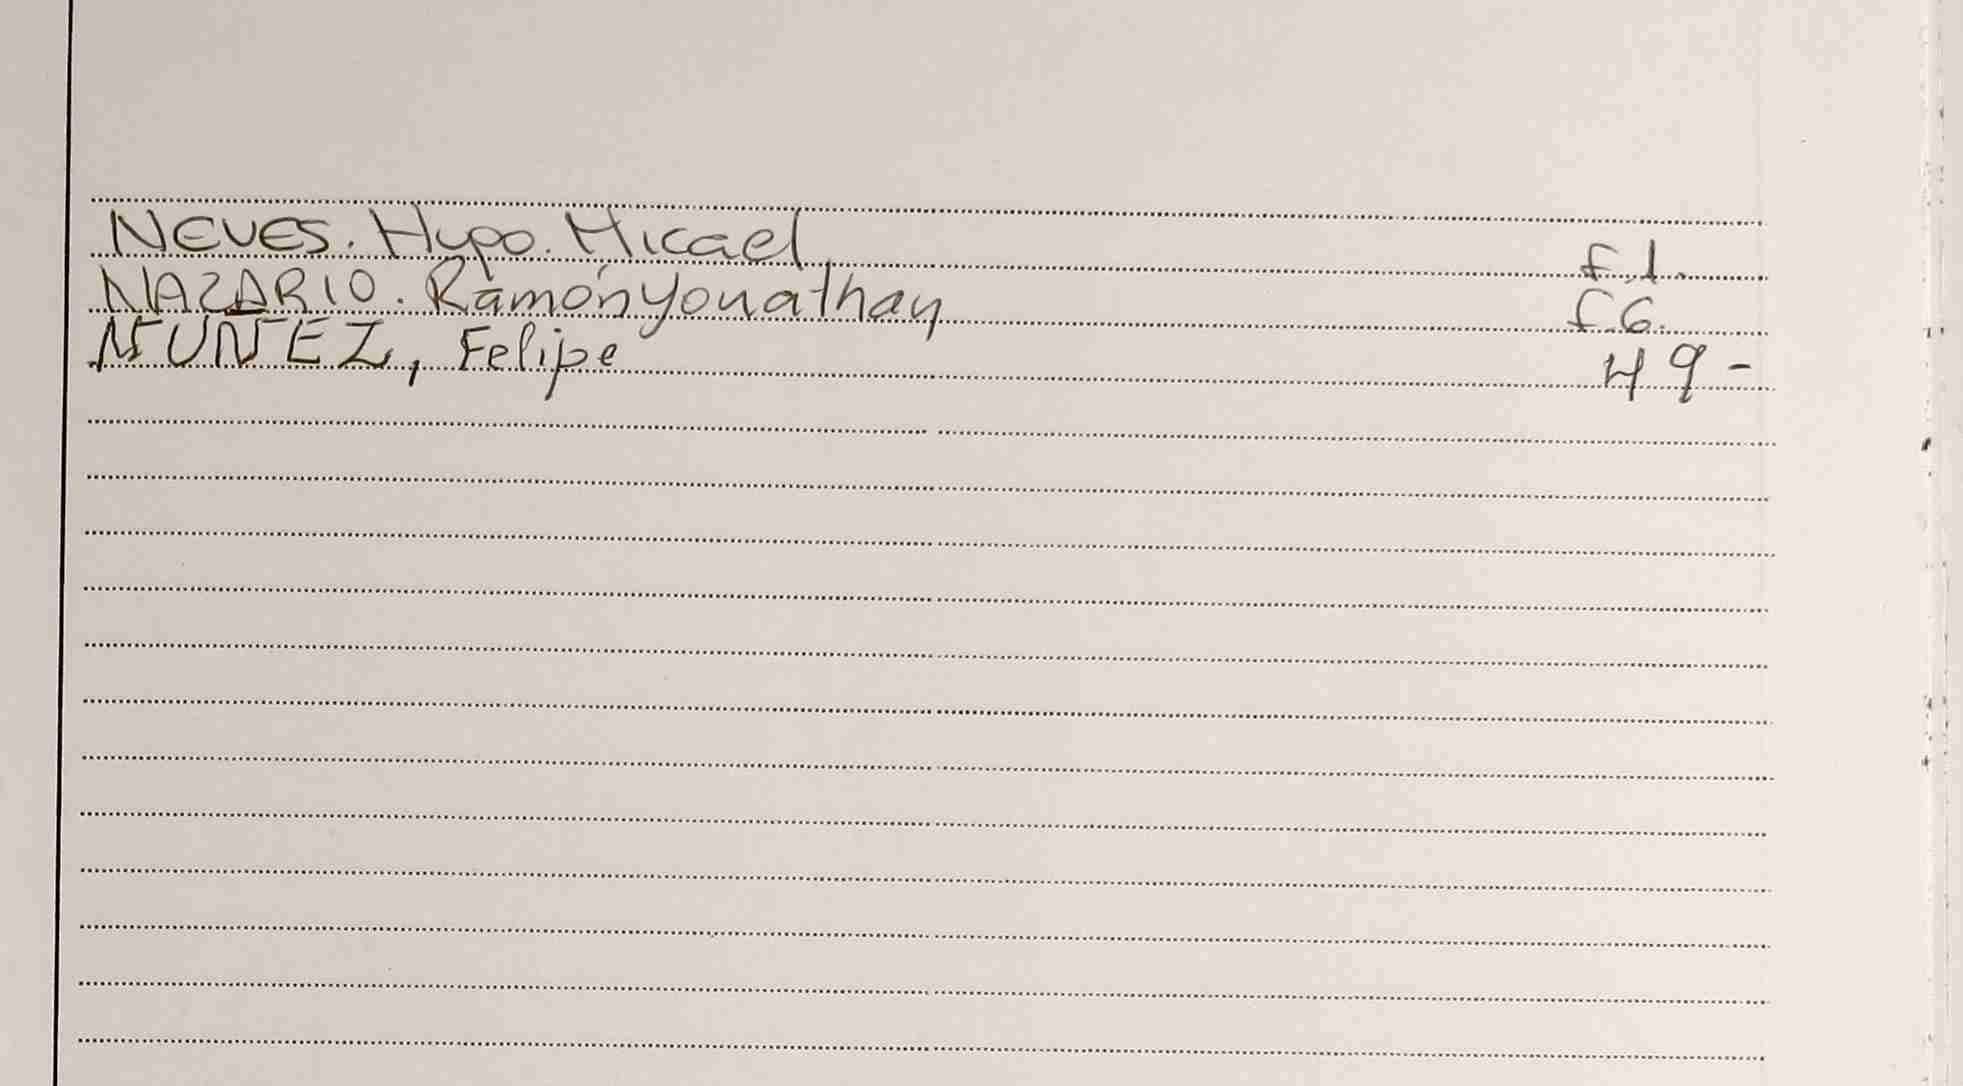 NEVES. Hypo. Micael f.1.
NAZARIO. Ramón Yonathan f.6.
NUNEZ, Felipe 49-